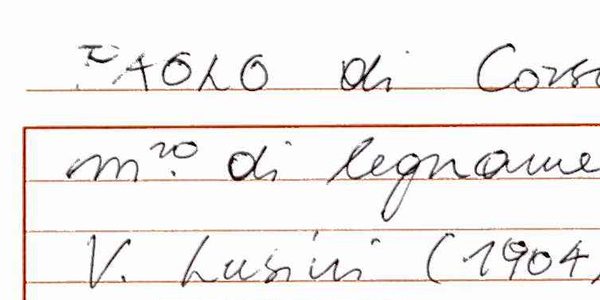 PAOLO di Corso
m.ro di legname
V. Lusini (1904,